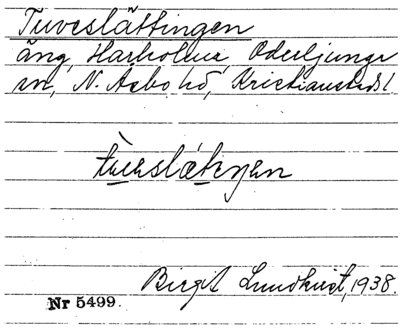 Tuveslättingen
äng, Harholma, Oderljunga
sn, N. Åsbo hd, Kristianstads l.
Birgit Lundkvist, 1938.
Nr 5499.